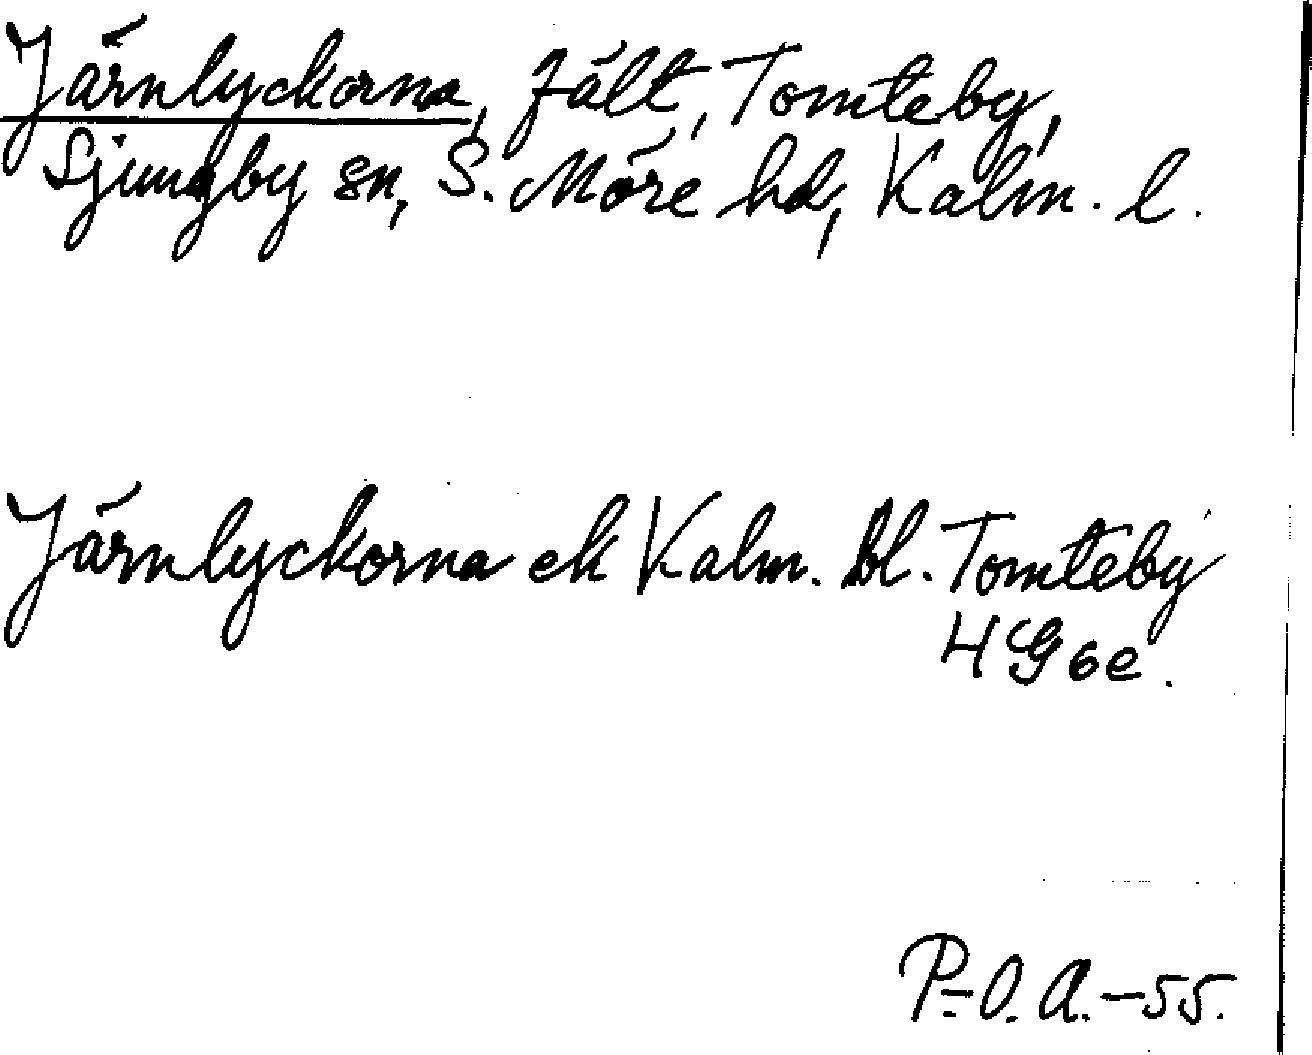 Järnlyckorna, fält, Tomteby,
Ljungby sn, S. Möre hd, Kalm. l.
Järnlyckorna ek Kalm. bl. Tomteby
4G6e.
P-O. A.-55.